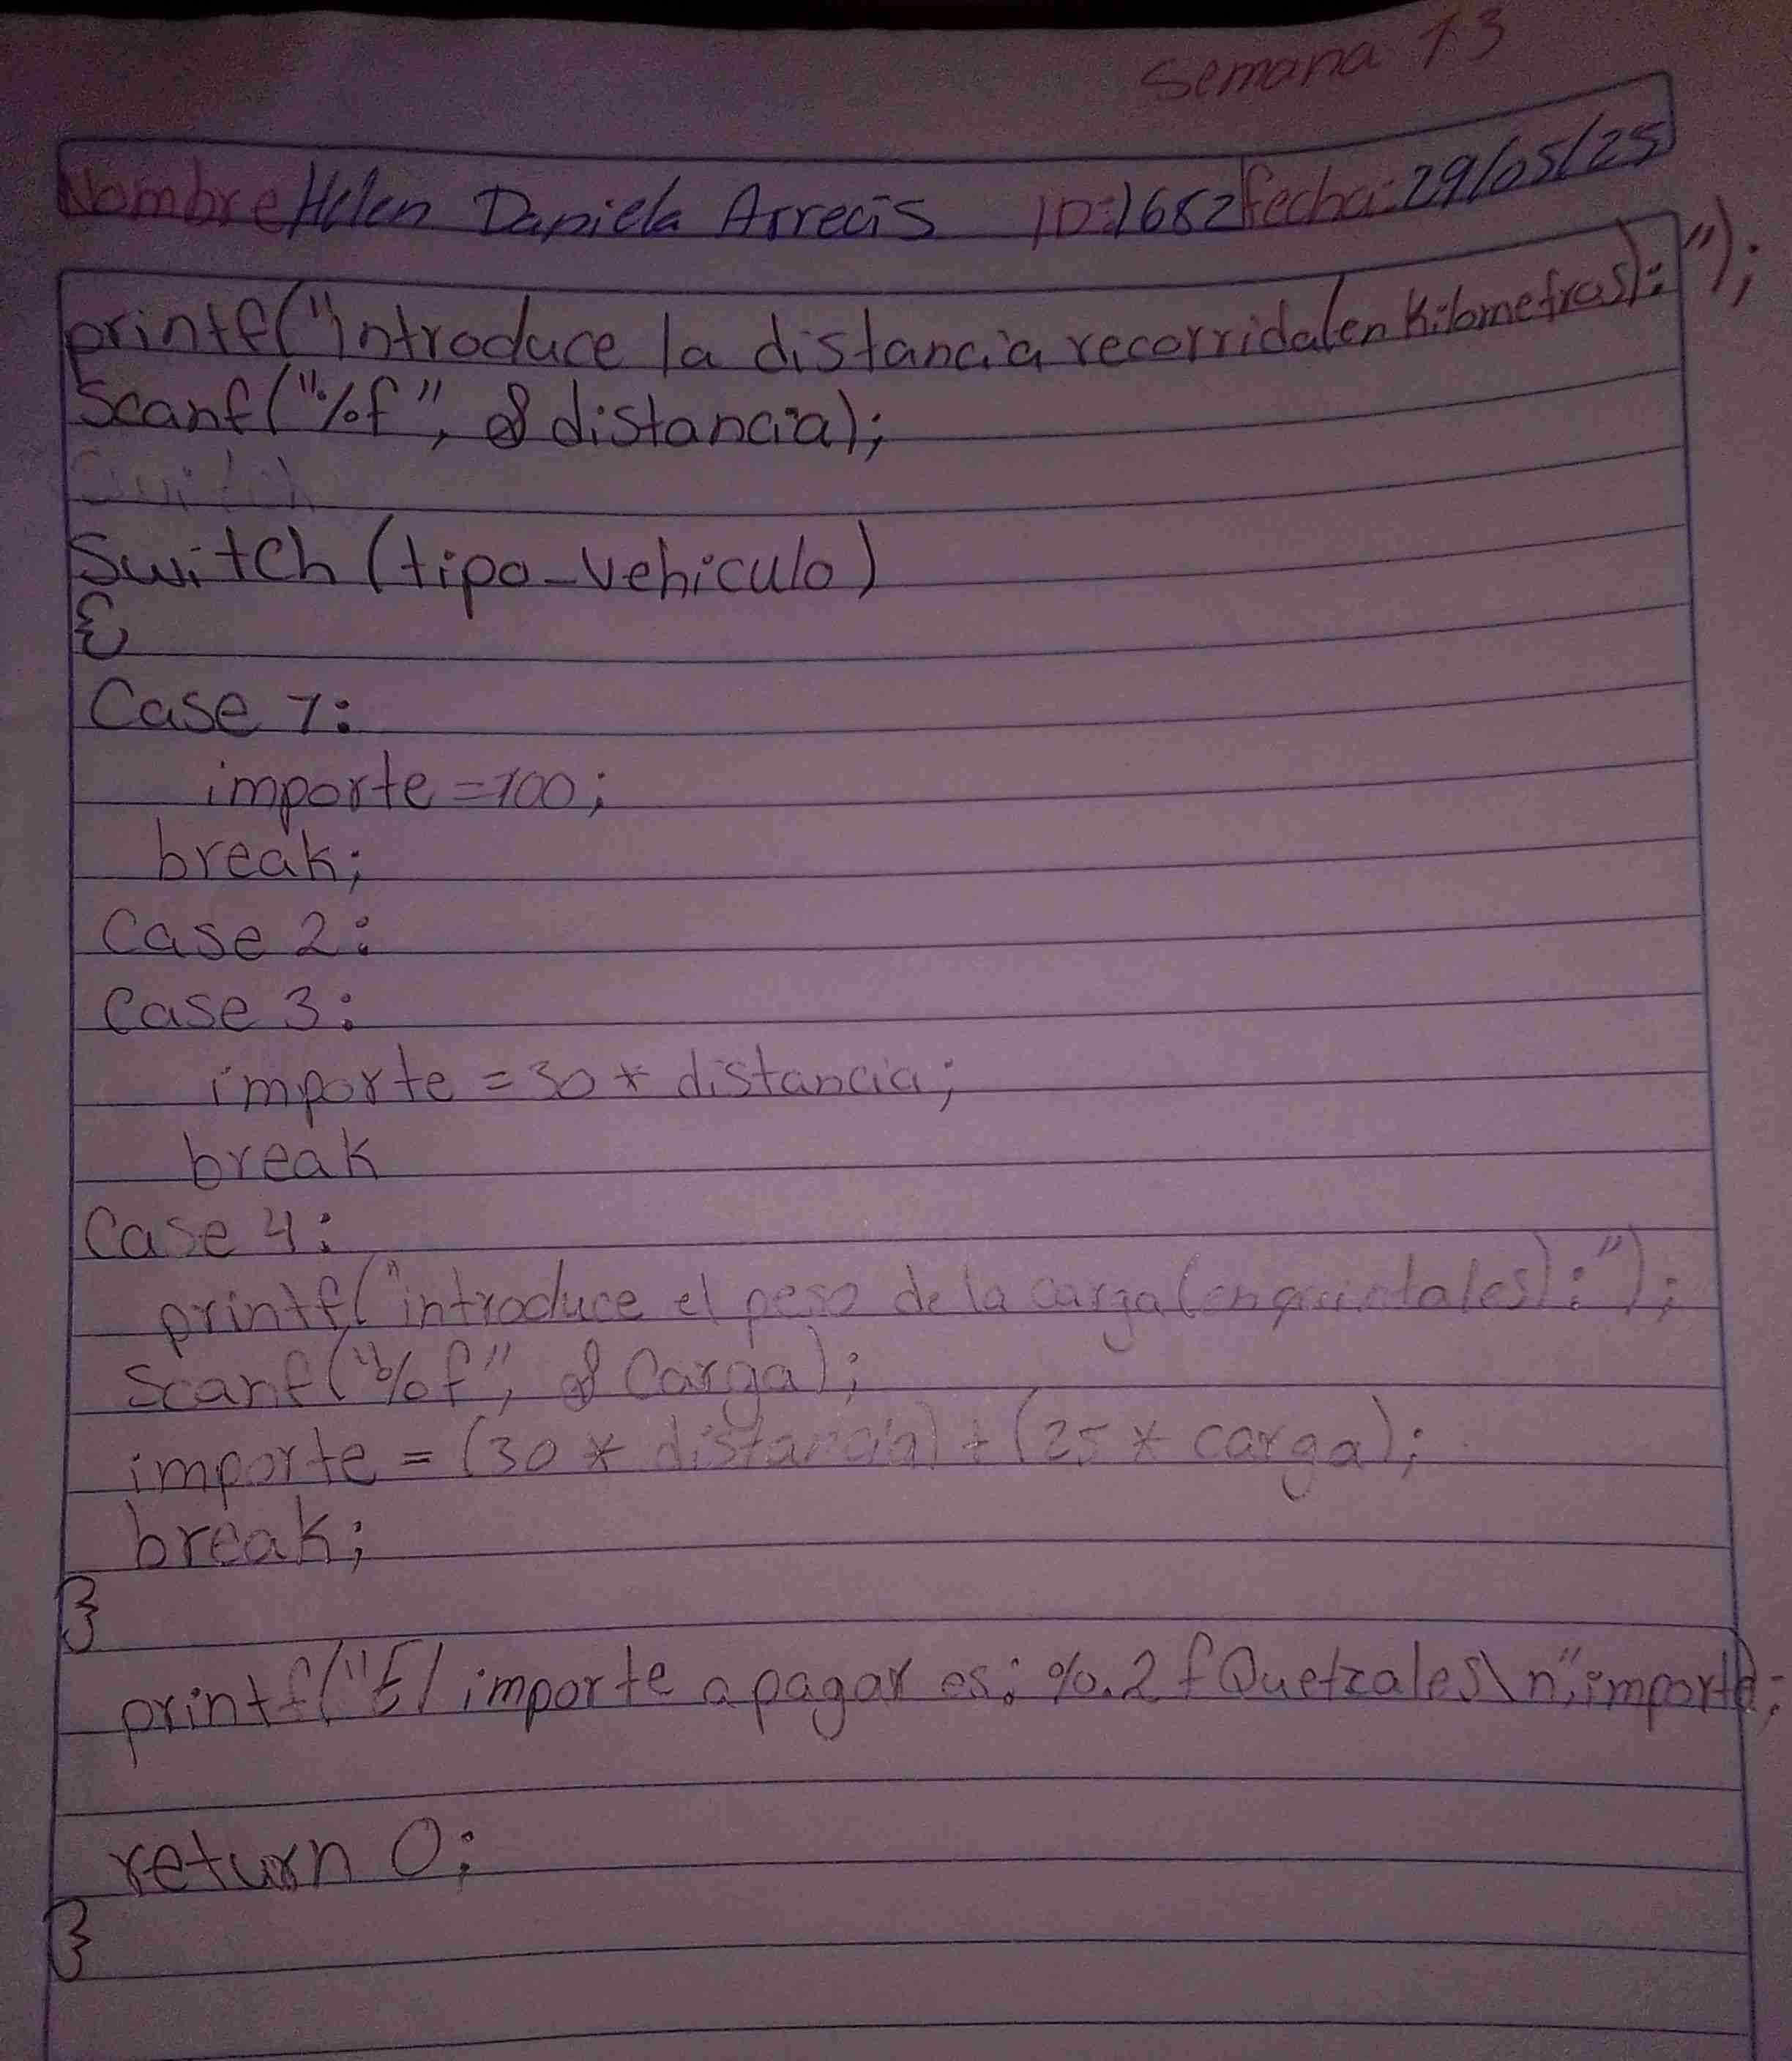 Semana 13
Nombre Helen Daniela Arrecis ID:1682 fecha: 29/05/25
printf("introduce la distancia recorrida(en Kilometros): ");
Scanf("%f", & distancia);
Switch
Switch (tipo_vehiculo)
{
Case 1:
importe = 100;
break;
Case 2:
Case 3:
importe = 30 * distancia;
break
Case 4:
printf("introduce el peso de la carga(en quintales): ");
Scanf("%f", & Carga);
importe = (30 * distancia) + (25 * carga);
break;
}
printf("El importe a pagar es: %.2f Quetzales\n", importe);
return 0;
}